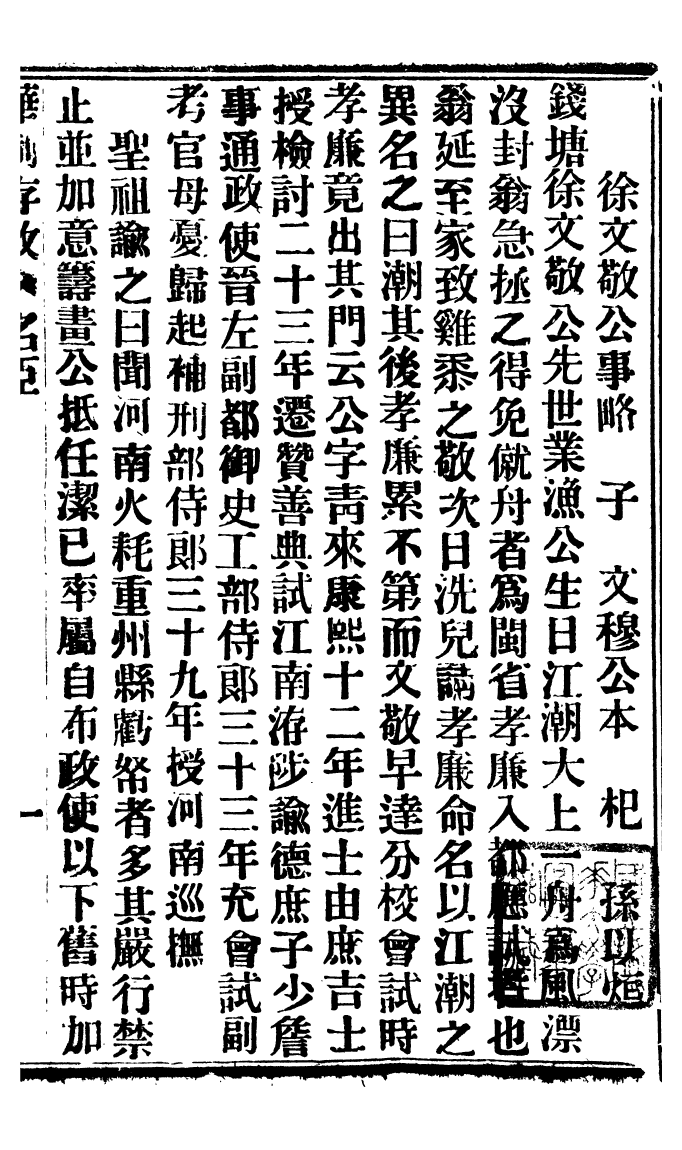 徐文敬公事略　子　文穆公本　杞　孫以烜
錢塘徐文敬公先世業漁公生日江潮大上一舟爲風漂
沒封翁急拯之得免僦舟者爲閩省孝廉入都應試者也
翁延至家致雞黍之敬次日洗兒謁孝廉命名以江潮之
異名之曰潮其後孝廉累不第而文敬早達分校會試時
孝廉竟出其門云公字靑來康熙十二年進士由庶吉士
授檢討二十三年遷贊善典試江南洊陟諭德庶子少詹
事通政使晉左副都御史工部侍郎三十三年充會試副
考官母憂歸起補刑部侍郎三十九年授河南巡撫
聖祖諭之曰聞河南火耗重州縣虧帑者多其嚴行禁
止並加意籌畫公抵任潔已率屬自布政使以下舊時加
名臣
一